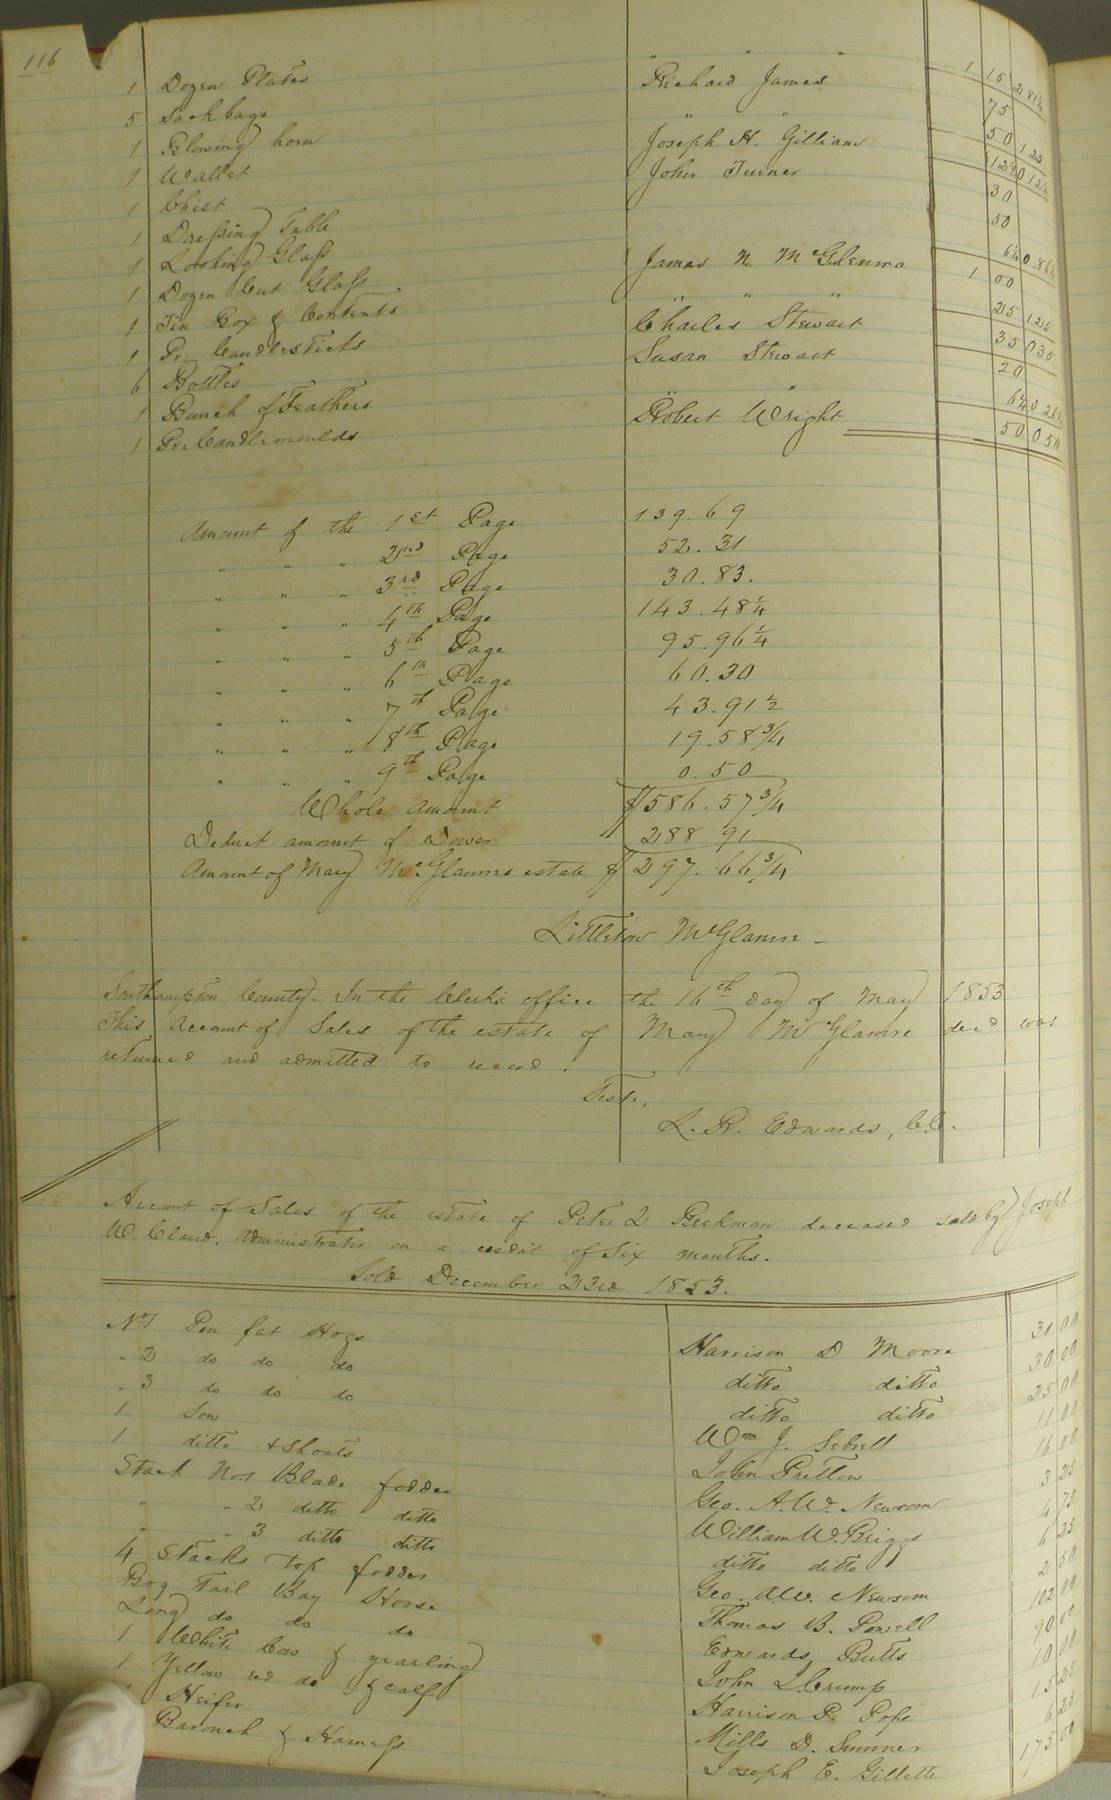 116
1 Dozen Plates " " " 1 15 2 81¼
5 Sack bags Richard James 75
1 Blowing horn " " 50 1 25
1 Wallet Joseph H. Gilliam 12½ 0 12½
1 Chist John Turner 30
1 Dressing Table 50
1 Looking Glass 6¼ 0.86¼
1 Dozen Cut Glass James N. McGlenma 1 00
1 Tin Box & Contents " " " 25 1.25
1 Pr. Candlesticks Charles Stewart 35 0 35
6 Bottles Susan Stewart 20
1 Bunch of Feathers " " 6¼ 0 26¼
1 Pr. Candlemoulds Robert Wright 50 0 50
Amount of the 1st Page 139.69
" " " 2nd Page 52.31
" " " 3rd Page 30.83.
" " " 4th Page 143.48¼
" " " 5th Page 95.96¼
" " " 6th Page 60.30
" " " 7th Page 43.91½
" " " 8th Page 19.58¾
" " " 9th Page 0.50
Whole amount $586.57¾
Deduct amount of Dower 288 91
Amount of Mary McGlamre estate $ 297.66¾
Littleton McGlamre
Southampton County - In the Clerk's office the 16th day of May 1853
This Account of Sales of the estate of Mary McGlamre decd was
returned and admitted to record.
Teste,
L. R. Edwards, C.C.
Account of Sales of the estate of Peter Beckman deceased sold by Joseph
W. Claud, Administrator on a credit of Six months.
Sold December 23rd 1853.
No 1 Pen fat Hogs Harrison D Moore 31 00
" 2 do do do ditto ditto 30 00
" 3 do do do ditto ditto 25 00
1 Sow Wm J. Sebrell 11 00
1 ditto & Shoats John Pretlow 16 00
Stack No 1 Blade fodder Geo. A. W. Newsom 3 25
" " 2 ditto ditto William W. Briggs 4 75
" " 3 ditto ditto ditto ditto 6 25
4 Stacks top fodder Geo. A. W. Newsom 2 50
Bog Tail Bay Horse Thomas B. Powell 102 00
Long do do do Edwards Butts 90 00
1 White Cow & yearling John Crump 10 00
1 Yellow red do & calf Harrison P. Pope 15 25
1 Heifer Mills D. Sumner 6 25
Barouch & Harness Joseph E. Gillette 175 00